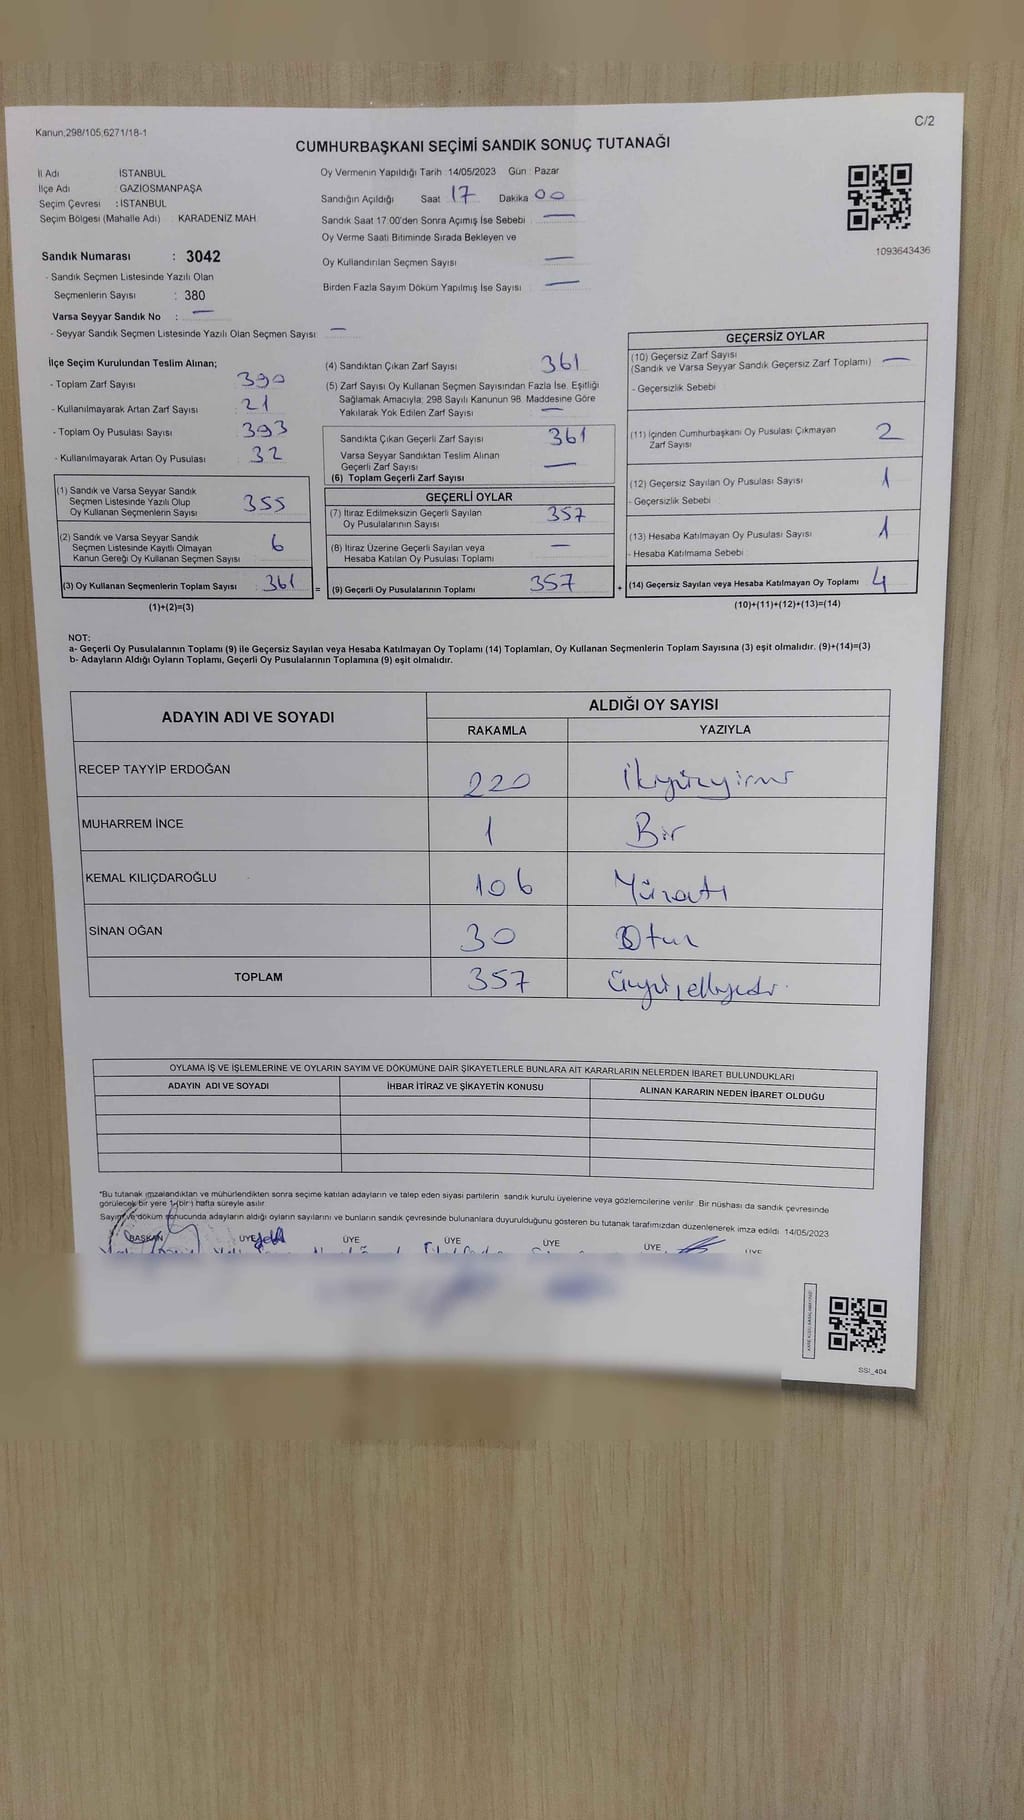 C/2
Kanun,298/105,6271/18-1
CUMHURBAŞKANI SEÇİMİ SANDIK SONUÇ TUTANAĞI
İl Adı İSTANBUL
İlçe Adı : GAZİOSMANPAŞA
Seçim Çevresi : İSTANBUL
Seçim Bölgesi (Mahalle Adı) : KARADENİZ MAH
Oy Vermenin Yapıldığı Tarih : 14/05/2023 Gün : Pazar
Sandığın Açıldığı Saat 17 Dakika 00
Sandık Saat 17:00'den Sonra Açımış İse Sebebi —
Oy Verme Saati Bitiminde Sırada Bekleyen ve
Oy Kullandırılan Seçmen Sayısı —
Birden Fazla Sayım Döküm Yapılmış İse Sayısı —
1093643436
Sandık Numarası : 3042
- Sandık Seçmen Listesinde Yazılı Olan
Seçmenlerin Sayısı : 380
Varsa Seyyar Sandık No : —
- Seyyar Sandık Seçmen Listesinde Yazılı Olan Seçmen Sayısı : —
İlçe Seçim Kurulundan Teslim Alınan;
- Toplam Zarf Sayısı : 390
- Kullanılmayarak Artan Zarf Sayısı : 21
- Toplam Oy Pusulası Sayısı : 393
- Kullanılmayarak Artan Oy Pusulası : 32
(1) Sandık ve Varsa Seyyar Sandık
Seçmen Listesinde Yazılı Olup
Oy Kullanan Seçmenlerin Sayısı : 355
(2) Sandık ve Varsa Seyyar Sandık
Seçmen Listesinde Kayıtlı Olmayan
Kanun Gereği Oy Kullanan Seçmen Sayısı : 6
(3) Oy Kullanan Seçmenlerin Toplam Sayısı : 361
(1)+(2)=(3)
(4) Sandıktan Çıkan Zarf Sayısı 361
(5) Zarf Sayısı Oy Kullanan Seçmen Sayısından Fazla İse, Eşitliği
Sağlamak Amacıyla; 298 Sayılı Kanunun 98. Maddesine Göre
Yakılarak Yok Edilen Zarf Sayısı —
Sandıkta Çıkan Geçerli Zarf Sayısı 361
Varsa Seyyar Sandıktan Teslim Alınan
Geçerli Zarf Sayısı —
(6) Toplam Geçerli Zarf Sayısı
GEÇERLİ OYLAR
(7) İtiraz Edilmeksizin Geçerli Sayılan
Oy Pusulalarının Sayısı 357
(8) İtiraz Üzerine Geçerli Sayılan veya
Hesaba Katılan Oy Pusulası Toplamı —
= (9) Geçerli Oy Pusulalarının Toplamı 357 +
GEÇERSİZ OYLAR
(10) Geçersiz Zarf Sayısı
(Sandık ve Varsa Seyyar Sandık Geçersiz Zarf Toplamı) —
- Geçersizlik Sebebi
(11) İçinden Cumhurbaşkanı Oy Pusulası Çıkmayan
Zarf Sayısı 2
(12) Geçersiz Sayılan Oy Pusulası Sayısı 1
- Geçersizlik Sebebi
(13) Hesaba Katılmayan Oy Pusulası Sayısı 1
- Hesaba Katılmama Sebebi
(14) Geçersiz Sayılan veya Hesaba Katılmayan Oy Toplamı 4
(10)+(11)+(12)+(13)=(14)
NOT:
a- Geçerli Oy Pusulalarının Toplamı (9) ile Geçersiz Sayılan veya Hesaba Katılmayan Oy Toplamı (14) Toplamları, Oy Kullanan Seçmenlerin Toplam Sayısına (3) eşit olmalıdır. (9)+(14)=(3)
b- Adayların Aldığı Oyların Toplamı, Geçerli Oy Pusulalarının Toplamına (9) eşit olmalıdır.
ADAYIN ADI VE SOYADI
ALDIĞI OY SAYISI
RAKAMLA YAZIYLA
RECEP TAYYİP ERDOĞAN 220 İkiyüzyirmi
MUHARREM İNCE 1 Bir
KEMAL KILIÇDAROĞLU 106 Yüzaltı
SİNAN OĞAN 30 Otuz
TOPLAM 357 Üçyüzelliyedi
OYLAMA İŞ VE İŞLEMLERİNE VE OYLARIN SAYIM VE DÖKÜMÜNE DAİR ŞİKAYETLERLE BUNLARA AİT KARARLARIN NELERDEN İBARET BULUNDUKLARI
ADAYIN ADI VE SOYADI İHBAR İTİRAZ VE ŞİKAYETİN KONUSU ALINAN KARARIN NEDEN İBARET OLDUĞU
*Bu tutanak imzalandıktan ve mühürlendikten sonra seçime katılan adayların ve talep eden siyasi partilerin sandık kurulu üyelerine veya gözlemcilerine verilir. Bir nüshası da sandık çevresinde
görülecek bir yere 1 (bir) hafta süreyle asılır
Sayım ve döküm sonucunda adayların aldığı oyların sayılarını ve bunların sandık çevresinde bulunanlara duyurulduğunu gösteren bu tutanak tarafımızdan düzenlenerek imza edildi. 14/05/2023
BAŞKAN ÜYE ÜYE ÜYE ÜYE ÜYE ÜYE
SSI_404